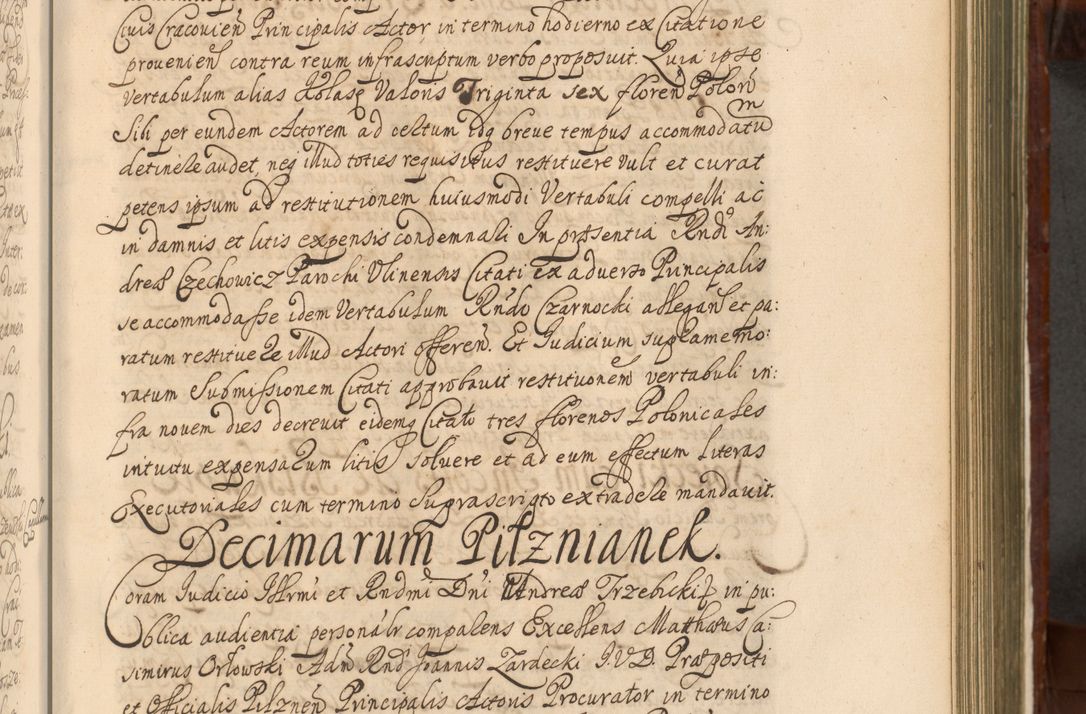 Civis Cracovień Principalis Actor in termino hodierno ex Citatione
provenień contra reum infrascriptum verbo proposuit. Quia ipse
vertabulum alias Kolasę Valoris Triginta sex floreń Polon̄
Sibi per eundem Actorem ad certum idq breve tempus accommodatum
detinere audet, neq illud toties requisitus restituere vult et curat
petens ipsum ad restitutionem huiusmodi Vertabuli compelli ac
in damnis et litis expensis condemnari In præsentia Rndi An:
dreæ Czechowicz Parochi Ulinensis Citati ex adverso Principalis
se accommodasse idem Vertabulum Rndo Czarnocki allegań et pa:
ratum restituere illud Actori offereń. Et Iudicium supramemo:
ratum Submissionem Citati approbavit restitutionem vertabuli in:
fra novem dies decrevit eidemq Citato tres florenos Polonicales
intuitu expensarum litis solvere et ad eum effectum Literas
Executoriales cum termino Suprascripto extradere mandavit.
Decimarum Pilznianek.
Coram Iudicio Illrmi et Rndmi Dni Andreæ Trzebicki in pu:
blica audientia personalr comparens Excellens Matthæus Ca:
simirus Orłowski Adm Rndi Joannis Zardecki I.V.D. Præpositi
et Officialis Pilzneń Principalis Actoris Procurator in termino